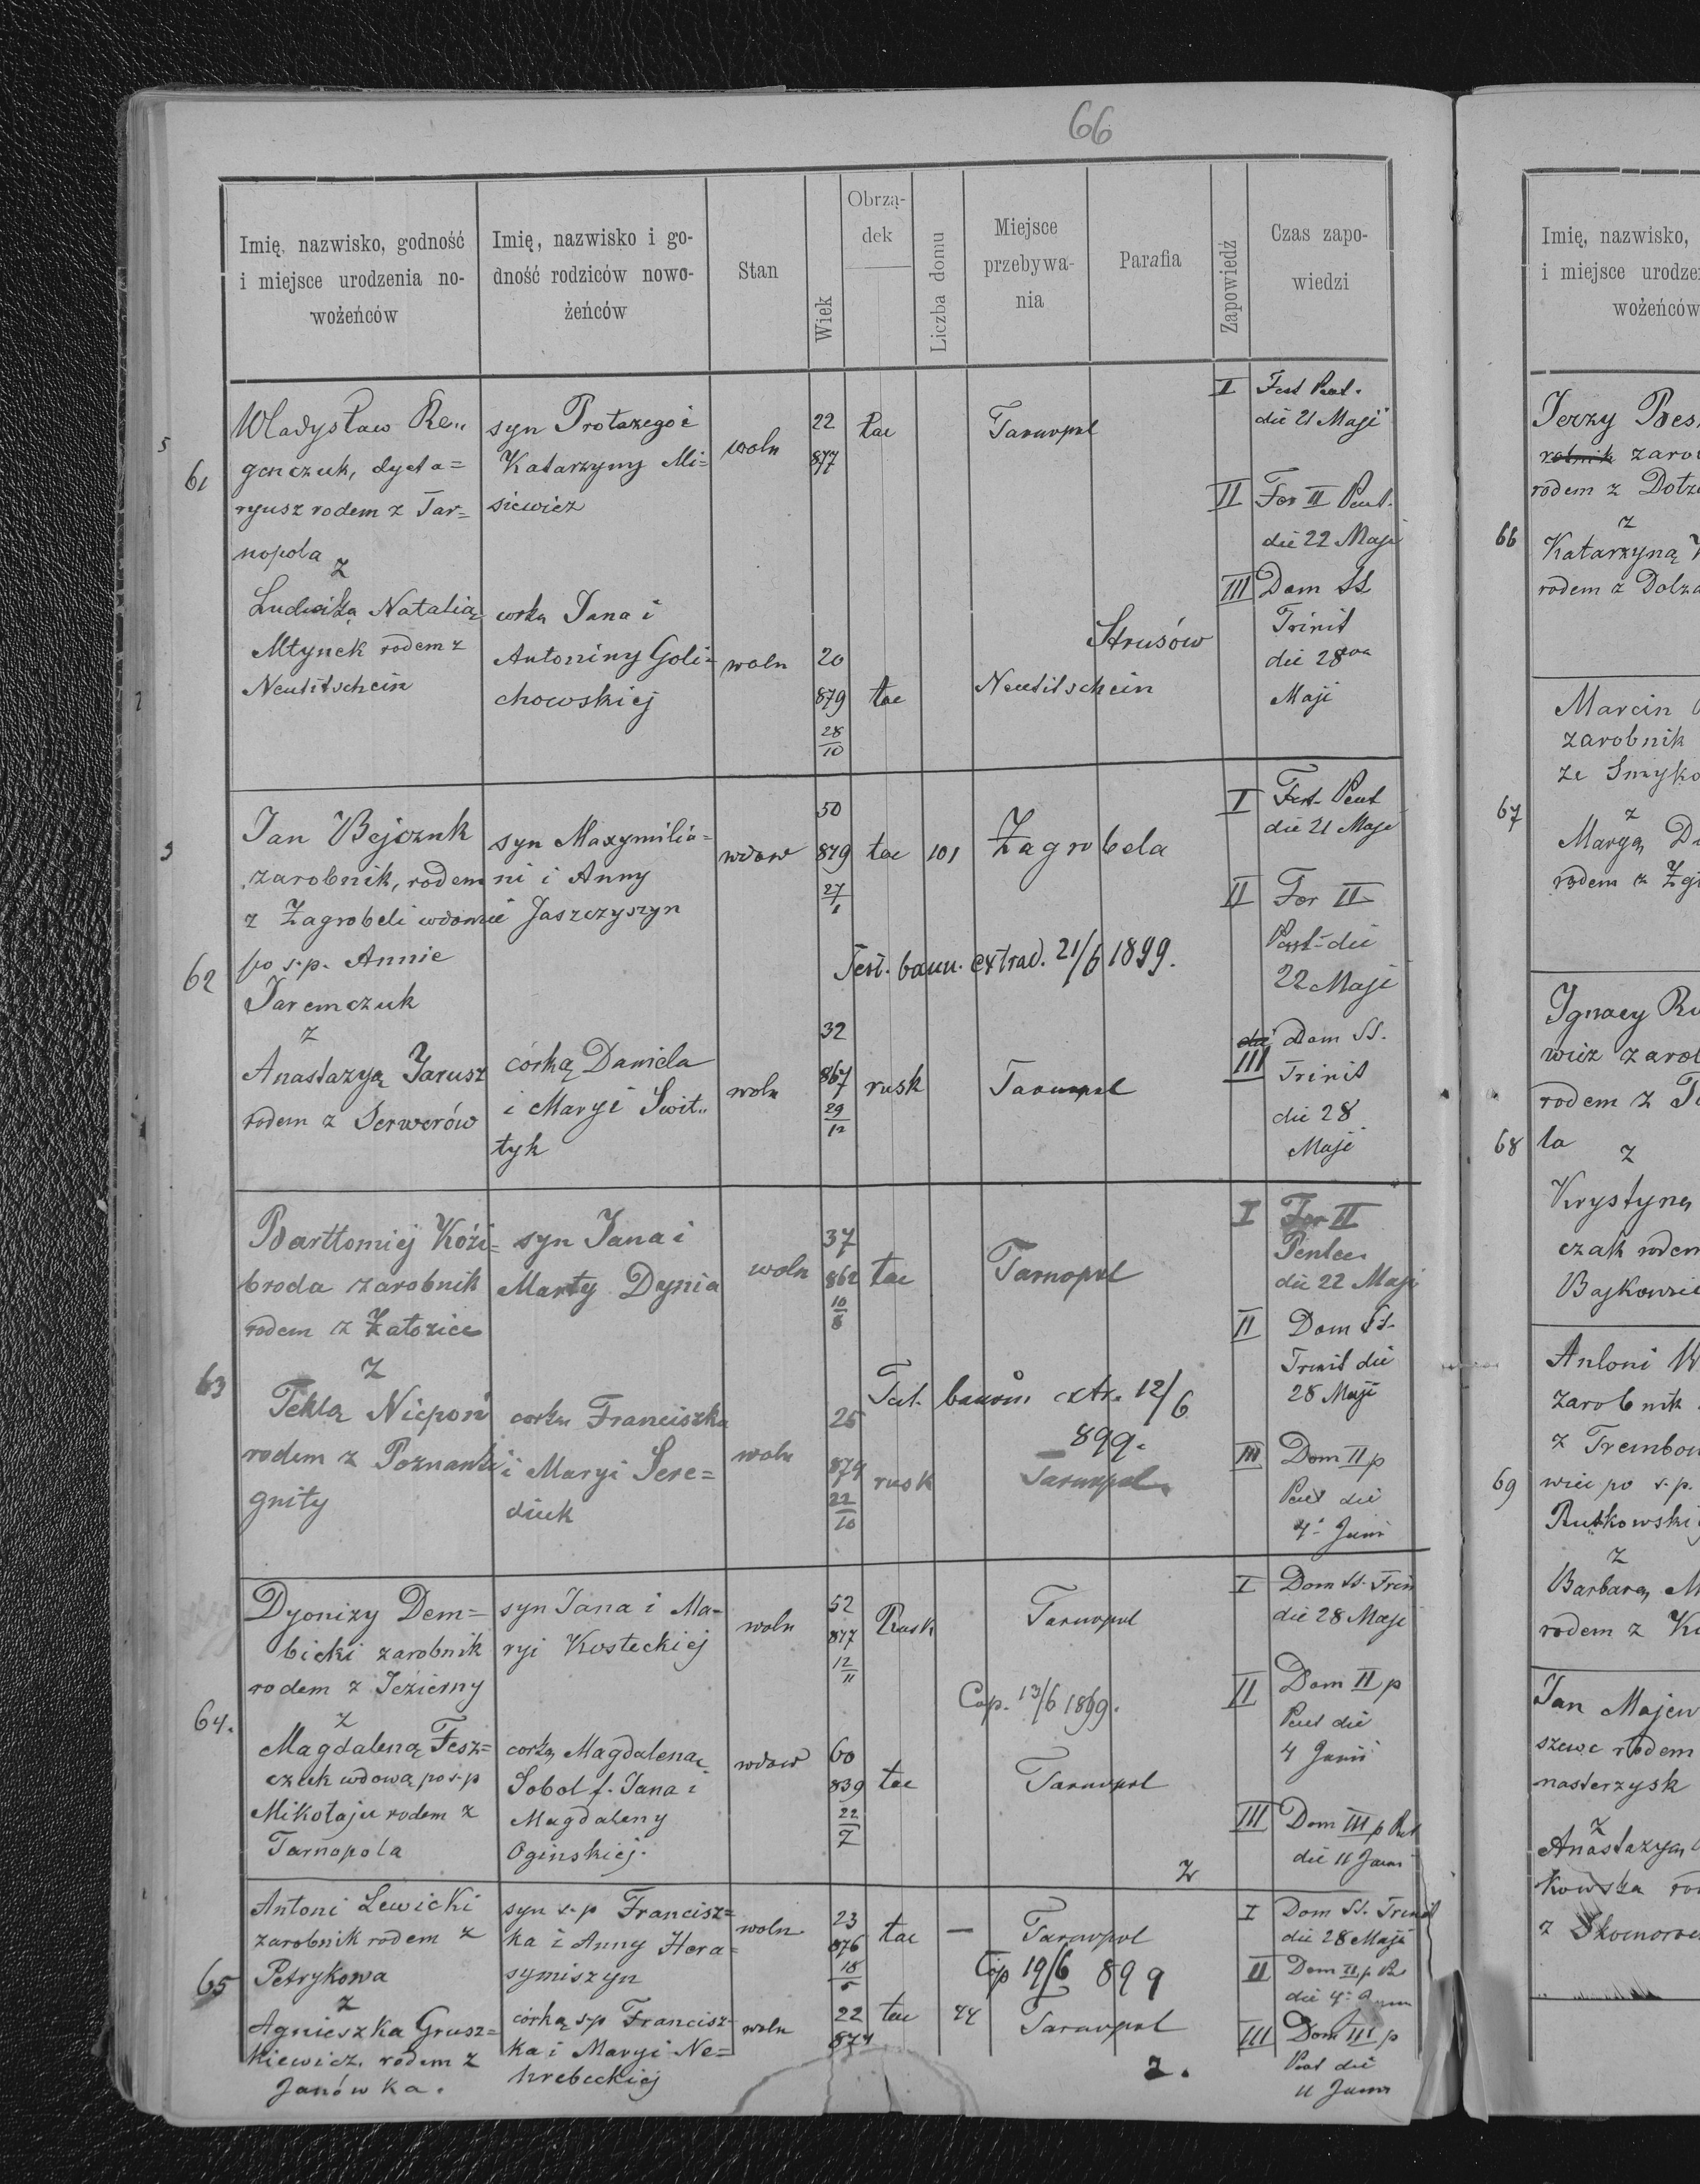 66
Imię, nazwisko, godność
i miejsce urodzenia no-
wożeńców
Imię, nazwisko i go-
dność rodziców nowo-
żeńców
Stan
Wiek
Obrzą-
dek
Liczba domu
Miejsce
przebywa-
nia
Parafia
Zapowiedź
Czas zapo-
wiedzi
61
Władysław Re„
genczuk, dyeta=
ryusz rodem z Tar=
nopola
z
Ludwiką Natalią
Młynek rodem z
Neutitschein
syn Protazego i
Katarzyny Mi=
siewicz
corką Jana i
Antoniny Goli=
chowskiej
woln
woln
22
877
20
879
28
10
łac
łac
Tarnopol
Neutitschein
Strusów
I Fest Pent.
die 21 Maji
II Fer II Pent.
die 22 Maji
III Dom SS
Trinit
die 28
Maji
62
Jan Bejcznk
zarobnik, rodem
z Zagrobeli wdowiec
po s.p. Annie
Jaremczuk
z
Anastazyą Jarusz
rodem z Serwerów
syn Maxymilia=
ni i Anny
Jaszczyszyn
córką Daniela
i Maryi Swit„
tyk
wdow
woln
50
849
27
1
32
867
29
12
łac
rusk
101
Zagrobela
Test. bann. extrad. 21/6 1899.
Tarnopol
I Fest. Pent
die 21 Maji
II Fer II
Pent die
22 Maji
III Dom SS.
Trinit
die 28
Maji
63
Bartłomiej Kozi=
broda zarobnik
rodem z Załozice
z
Teklą Niepoń
rodem z Poznanki
gnity
syn Jana i
Marty Dynia
corką Franciszka
i Maryi Sere=
diuk
woln
woln
37
862
10
8
25
874
22
10
łac
rusk
Tarnopol
Test. bannor extr. 12/6
899.
Tarnopol
I Fer II
Pentec
die 22 Maji
II Dom SS.
Trinit die
28 Maji
III Dom II p
Pent die
4 Juni
64.
Dyonizy Dem=
bicki zarobnik
rodem z Jezierny
z
Magdaleną Fesz=
czuk wdową po s.p
Mikołaju rodem z
Tarnopola
syn Jana i Ma-
ryi Kosteckiej
corką Magdaleną
Sobol f. Jana i
Magdaleny
Oginskiej.
woln
wdow
52
847
12
11
60
839
22
7
Rusk
łac
Tarnopol
Cop. 13/6 1899.
Tarnopol
I Dom SS. Trin
die 28 Maji
II Dom II p
Pent die
4 Junii
III Dom III p Pent
die 11 Juni
65
Antoni Lewicki
zarobnik rodem z
Petrykowa
z
Agnieszka Grusz=
kiewicz, rodem z
Janówka.
syn s.p Francisz=
ka i Anny Hera=
symiszyn
córką s.p Francisz
ka i Maryi Ne=
hrebeckiej
woln
woln
23
876
18
5
22
877
łac
łac
—
44
Tarnopol
Cop 19/6 899
Tarnopol
2.
I Dom SS. Trinit
die 28 Maji
II Dom II p
die 4
III Dom III p
Pent die
11 Juni
Imię, nazwisko,
i miejsce urodze
wożeńców
66
Jerzy Bes
rolnik zaro
rodem z
z
Katarzyną
rodem z
67
Marcin
zarobnik
ze Smyko
z
Maryą
rodem z
68
Ignacy Ru
wicz zarob
rodem z
la
z
Krystyną
czak rodem
69
Antoni
zarobnik
z Trembow
wiec po s.p.
Rutkowski
z
Barbarą
rodem z
Jan Majew
szewc rodem
nasterzysk
z
Anastazyą
kowska
z